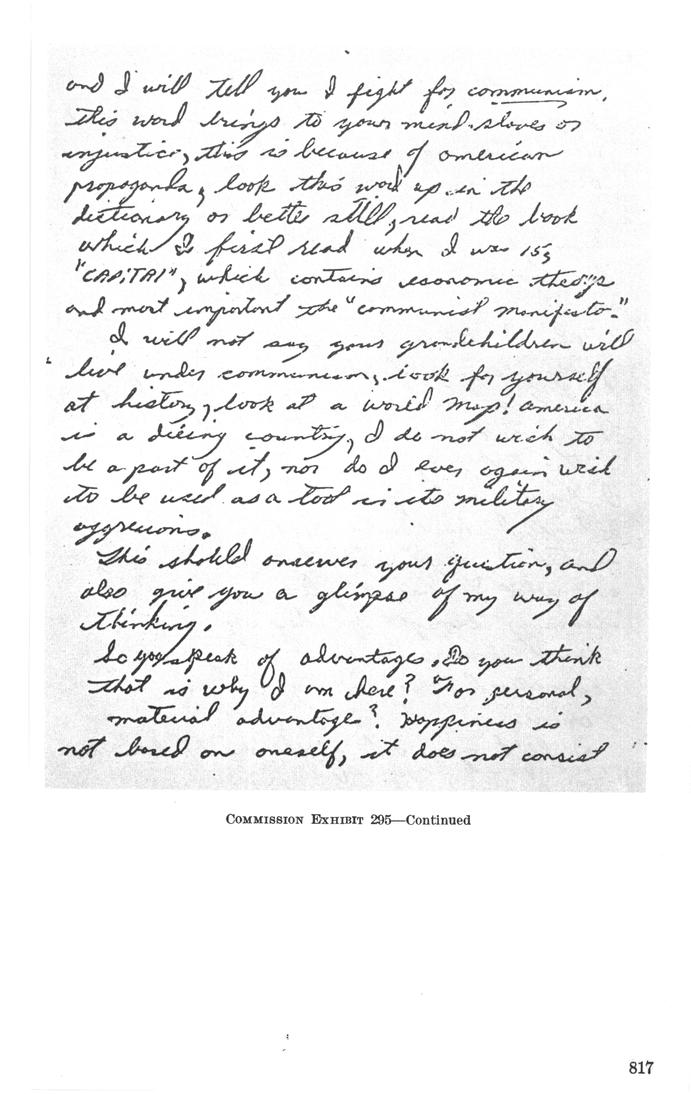 and I will tell you I fight for communism.
This word brings to your mind slaves or
injustice, this is because of american
propaganda, look this word up in the
dictionary or better still, read the book
which I first read when I was 15,
"CAPITAl", which contains economic theorys
and most important the "communist manifesto."
I will not say your grandchildren will
live under communism, look for yourself
at history, look at a world map! america
is a dieing country, I do not wish to
be a part of it, nor do I ever again wish
to be used as a tool in its military
aggressions.
This should answer your question, and
also give you a glimpse of my way of
thinking.
So you speak of advantages. Do you think
that is why I am here? For personal,
material advantage? Happiness is
not based on oneself, it does not consist
COMMISSION EXHIBIT 295—Continued
817